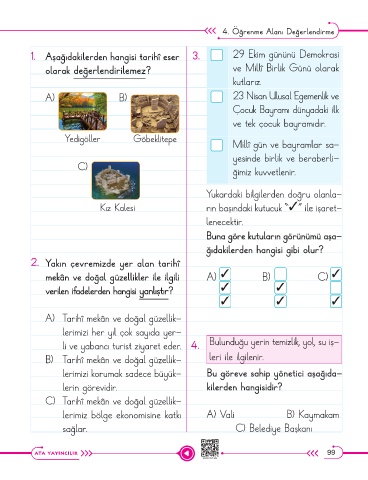 4. Öğrenme Alanı Değerlendirme
1. Aşağıdakilerden hangisi tarihî eser
olarak değerlendirilemez?
A)
B)
Yedigöller
Göbeklitepe
C)
Kız Kalesi
2. Yakın çevremizde yer alan tarihî
mekân ve doğal güzellikler ile ilgili
verilen ifadelerden hangisi yanlıştır?
A) Tarihî mekân ve doğal güzellik-
lerimizi her yıl çok sayıda yer-
li ve yabancı turist ziyaret eder.
B) Tarihî mekân ve doğal güzellik-
lerimizi korumak sadece büyük-
lerin görevidir.
C) Tarihî mekân ve doğal güzellik-
lerimiz bölge ekonomisine katkı
sağlar.
3. 29 Ekim gününü Demokrasi
ve Millî Birlik Günü olarak
kutlarız.
23 Nisan Ulusal Egemenlik ve
Çocuk Bayramı dünyadaki ilk
ve tek çocuk bayramıdır.
Millî gün ve bayramlar sa-
yesinde birlik ve beraberli-
ğimiz kuvvetlenir.
Yukarıdaki bilgilerden doğru olanla-
rın başındaki kutucuk "✓" ile işaret-
lenecektir.
Buna göre kutuların görünümü aşa-
ğıdakilerden hangisi gibi olur?
A) ✓ B) C) ✓
✓ ✓
✓ ✓ ✓
4. Bulunduğu yerin temizlik, yol, su iş-
leri ile ilgilenir.
Bu göreve sahip yönetici aşağıda-
kilerden hangisidir?
A) Vali B) Kaymakam
C) Belediye Başkanı
ATA YAYINCILIK
99